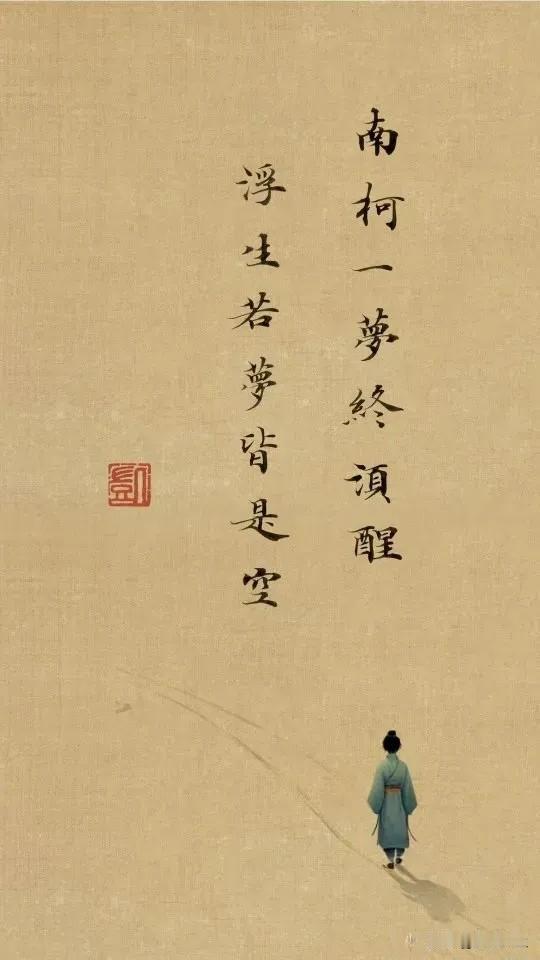 南柯一夢終須醒
浮生若夢皆是空
凱